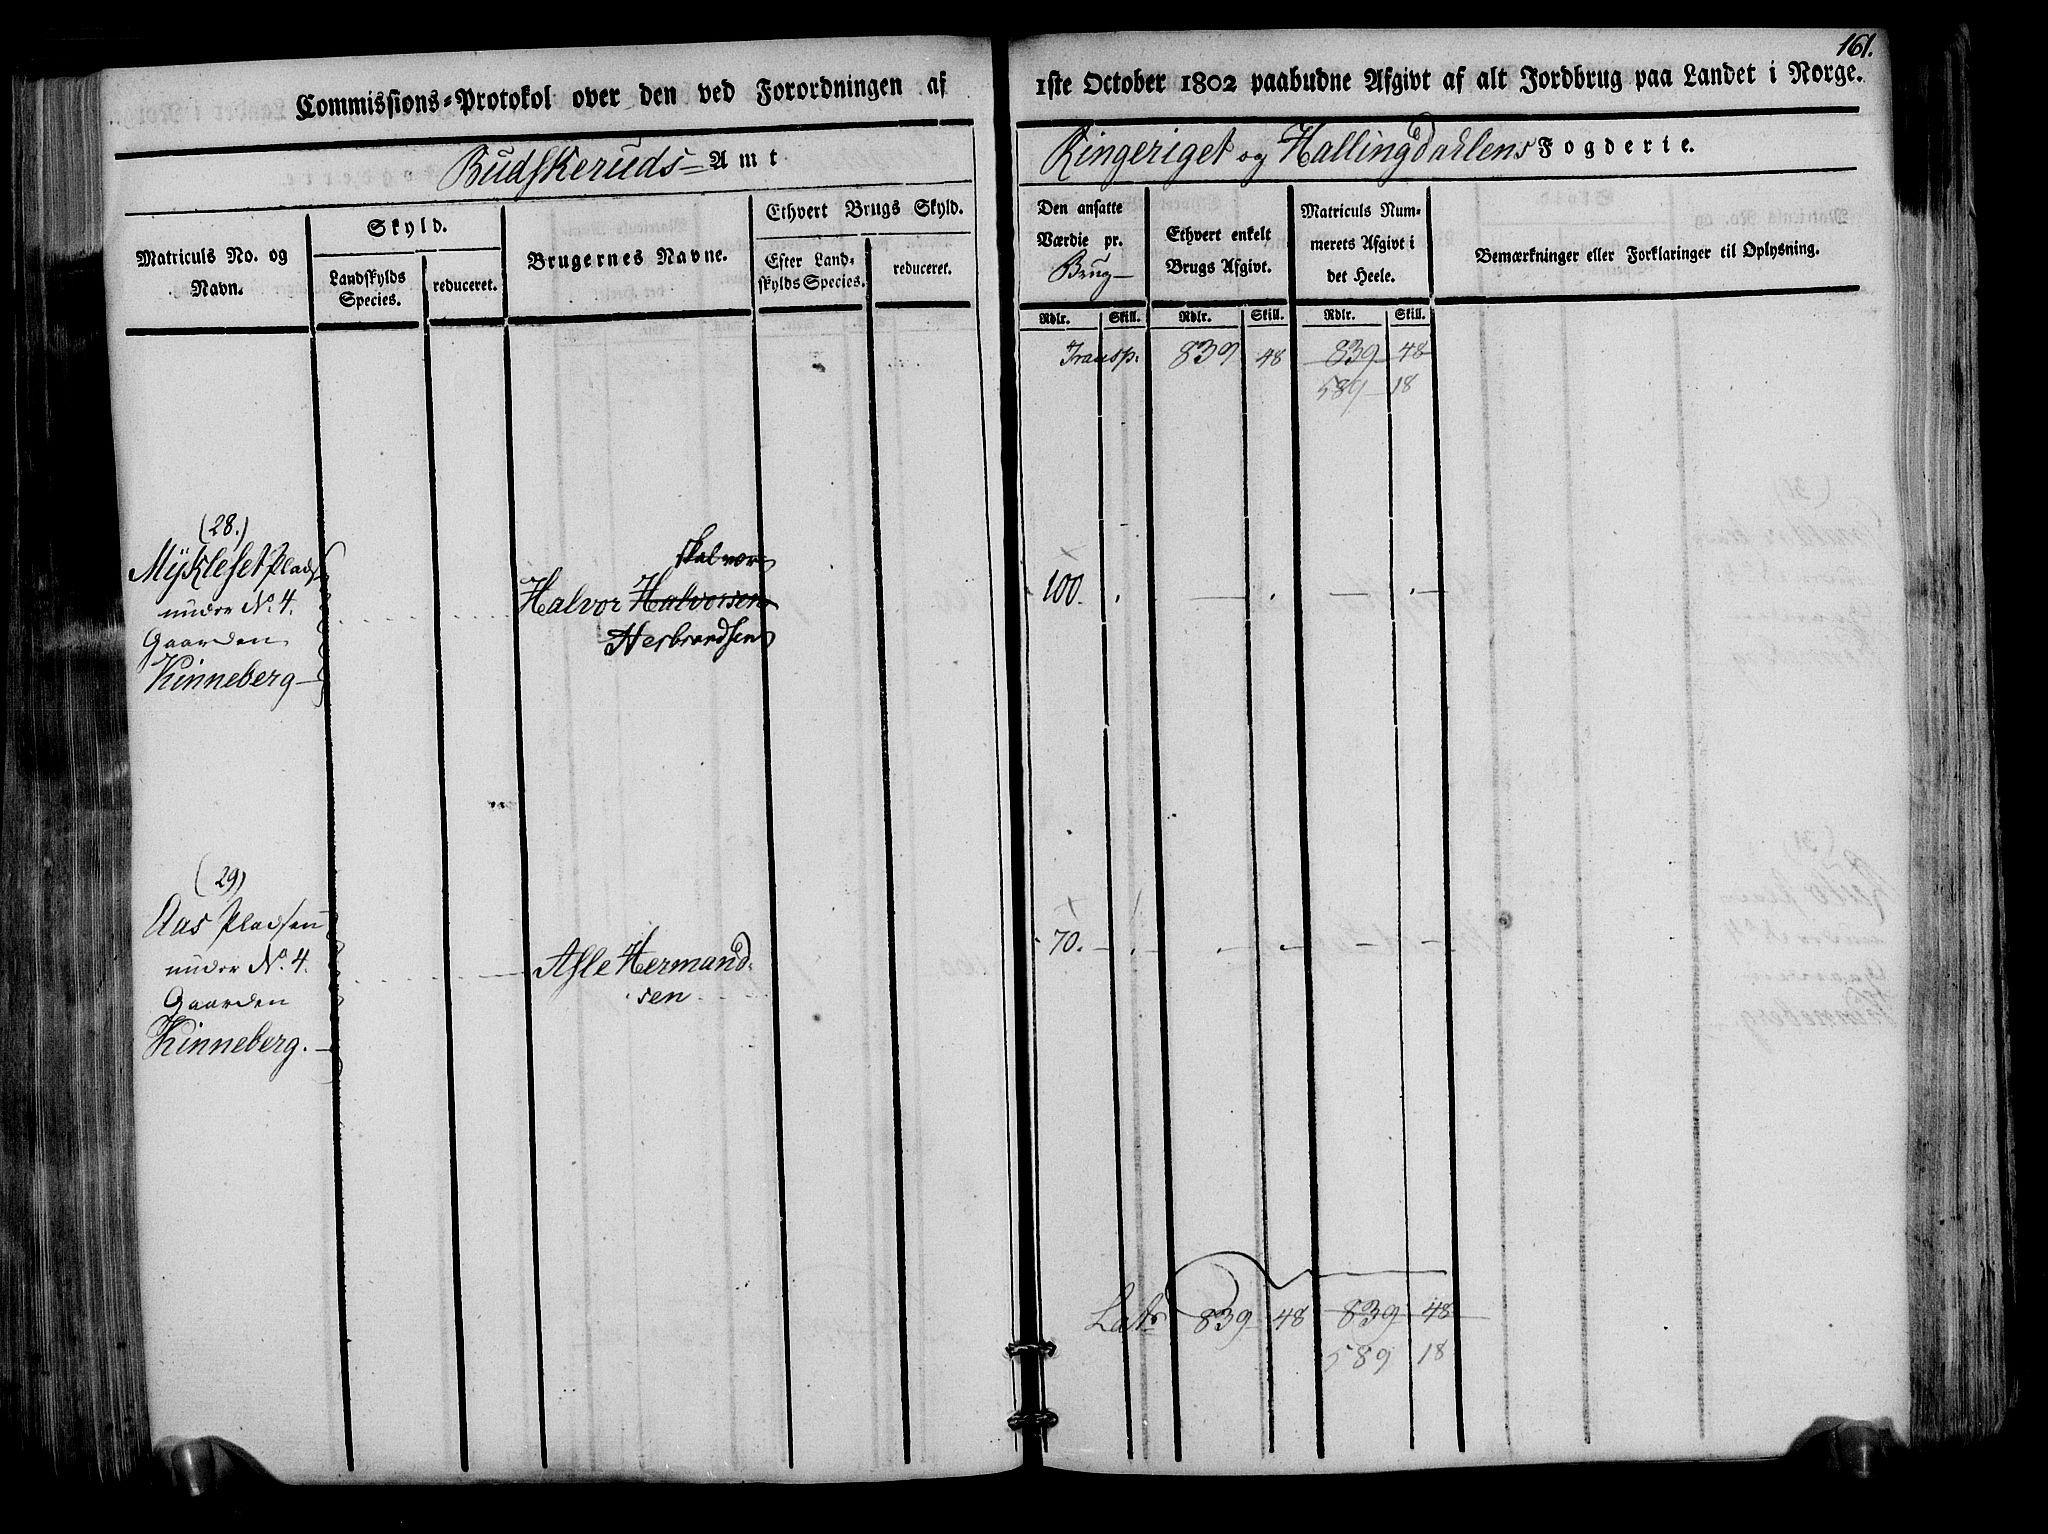 161.
Commissions=Protokol over den ved Forordningen af 1ste October 1802 paabudne Afgivt af alt Jordbrug paa Landet i Norge.
Budskeruds= Amt
Ringeriget og Hallingdahlens Fogderie.
Matriculs No. og Navn.
Skyld.
Landskylds Species.
reduceret.
Brugernes Navne.
Ethvert Brugs Skyld.
Efter Land-
skylds Species.
reduceret.
Den ansatte
Værdie pr.
Brug
Ethvert enkelt
Brugs Afgivt.
Matriculs Num-
merets Afgivt i
det Heele.
Bemærkninger eller Forklaringer til Oplysning.
Rdlr. Skill. Rdlr. Skill. Rdlr. Skill.
Transp. 839 48 839 48
589 18
(28.)
Mÿkleset Plads
under No. 4.
Gaarden
Kinneberg
skal vær
Halvor Halvorsen
Hesbrandsen
100.
(29)
Aas Pladsen
under No. 4.
Gaarden
Kinneberg.
Asle Hermand-
sen
70.
Lats 839 48 839 48
589 18